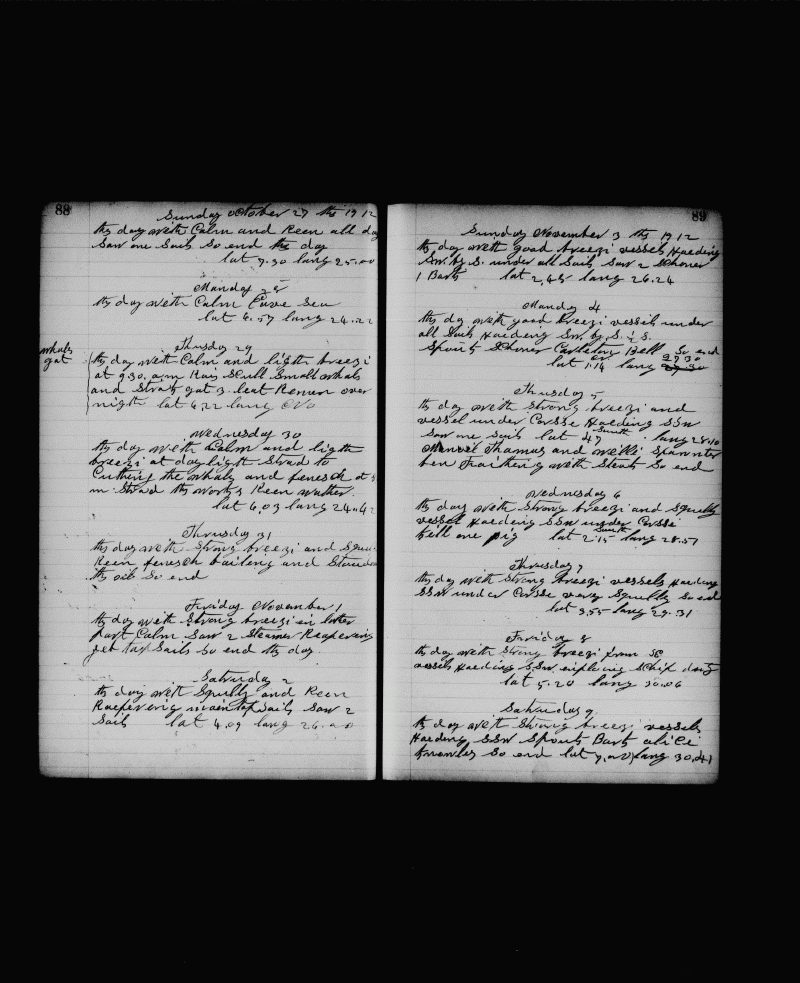 88
Sunday October 27 the 1912
thy day with Calm and Reen all day
Saw one Sails So end the day
lat 7.30 lang 25.00
Manday 28
thy day with Calm Sea
lat 6.57 lang 24.22
Thusday 29
whals
gat
thy day with Calm and light breezi
at 9.30. a.m Rais Scull Small whals
and Straty gat 3. leat Remen over
night lat 6.22 lang
Wednesday 30
thy day with Calm and ligth
breezi at day light Strad to
Cutting the whaly and fenesch at
m. Strad thy Worky Reen wather.
lat 6,03 lang 24.42
Thrusday 31
thy day with Strong breezi and
Reen fenesch baileng and
thy oil So end
Friday November 1
thy day with Strong breezi in latter
part Calm Saw 2 Steamer Reapering
jeb tap Sails So end thy day
Satruday 2
thy day with Squlty and Reen
Raepering main tap Sails Saw 2
Sails lat 4.09 lang 26.00
89
Sunday November 3 thy 1912
thy day with good breezi vessel Haeding
Sw. by S. under all Sails Saw 2 Schoner
1 Bark lat 2,45 lang 26.24
Manday 4
thy day with good breezi vessels under
all Sails Haeding Sw. by S. ½ S.
Spouts Schoner Bell So end
lat 1.14 lang 27.30
Thusday 5
thy day with Strong breezi and
vessel under Corsse Haeding SSw
Saw one Sails lat 47 South lang 28.10
Manuel Thamas and Willi
ben with So end
Wednesday 6
thy day with Strong breezi and Squlty
vessel Haeding SSw under Corsse
kell one pig lat 2.15 South lang 28.57
Thusday 7
thy day with Strong breezi vessels Haeding
SSw under Corsse very Squlty So end
lat 3,55 lang 29.31
Friday 8
thy day with Strong breezi from SE
vessels Haeding SSw. Schip duty
lat 5.20 lang 30.06
Satruday 9.
thy day with Strong breezi vessels
Haeding SSw Spouts Bark alice
knowles So end lat 7,00 lang 30.41